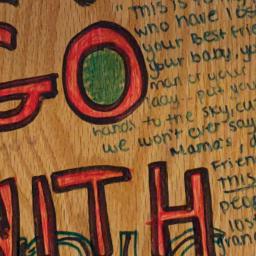 GO
WITH
"This is fo
who have los
your Best frie
your baby, yo
man or your
lady... put your
hands to the sky, cu
we won't ever say
Mama's,
Frien
this
peop
los
gran